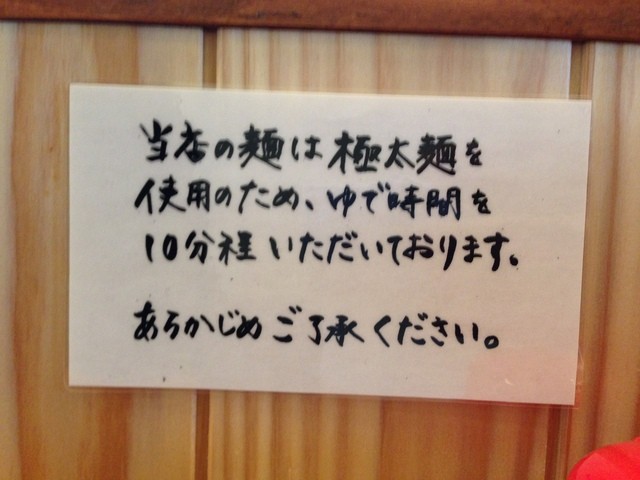 当店の麺は極太麺を
使用のため、ゆで時間を
10分程いただいております。
あらかじめご了承ください。